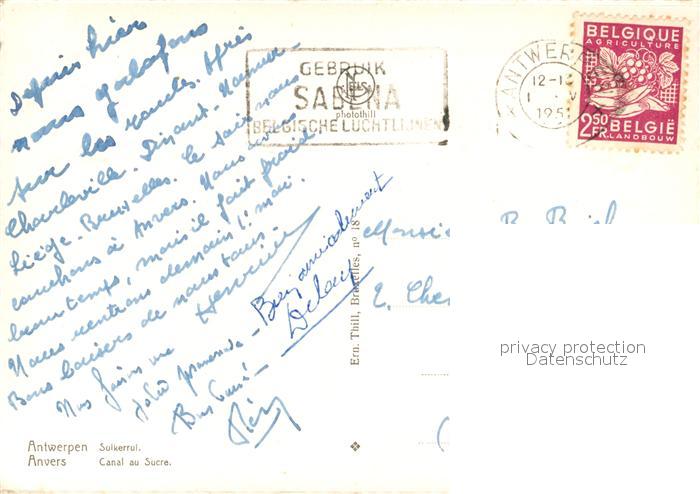 Depuis hier
nous galopons
sur les routes. Après
Charleville. Dinant. Namur
Liège. Bruxelles. Le soir nous
couchons à Anvers. Nous
beau temps, mais il fait froid
Nous rentrons demain 1r mai.
Bons baisers de nous tous.
Nous faisons une
jolie promenade -
Bien amicalement
Delacy
BELGIQUE
AGRICULTURE
2.50 FR BELGIË
LANDBOUW
ANTWER
12-1
195
GEBRUIK
SABENA
BELGISCHE LUCHTLIJNEN
photothill
Monsie B.
Ern. Thill, Bruxelles, nº 18
privacy protection
Datenschutz
Antwerpen Suikerrui.
Anvers Canal au Sucre.